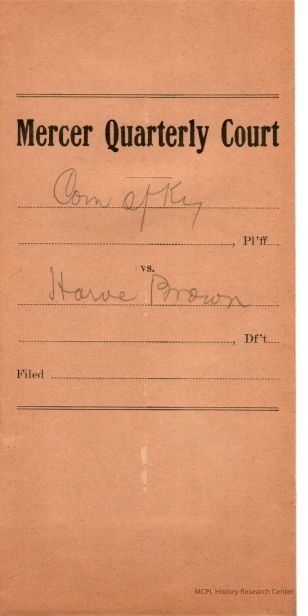 Mercer Quarterly Court
Com of Ky
, Pl'ff
vs.
Harve Brown
, Df't
Filed
MCPL History Research Center